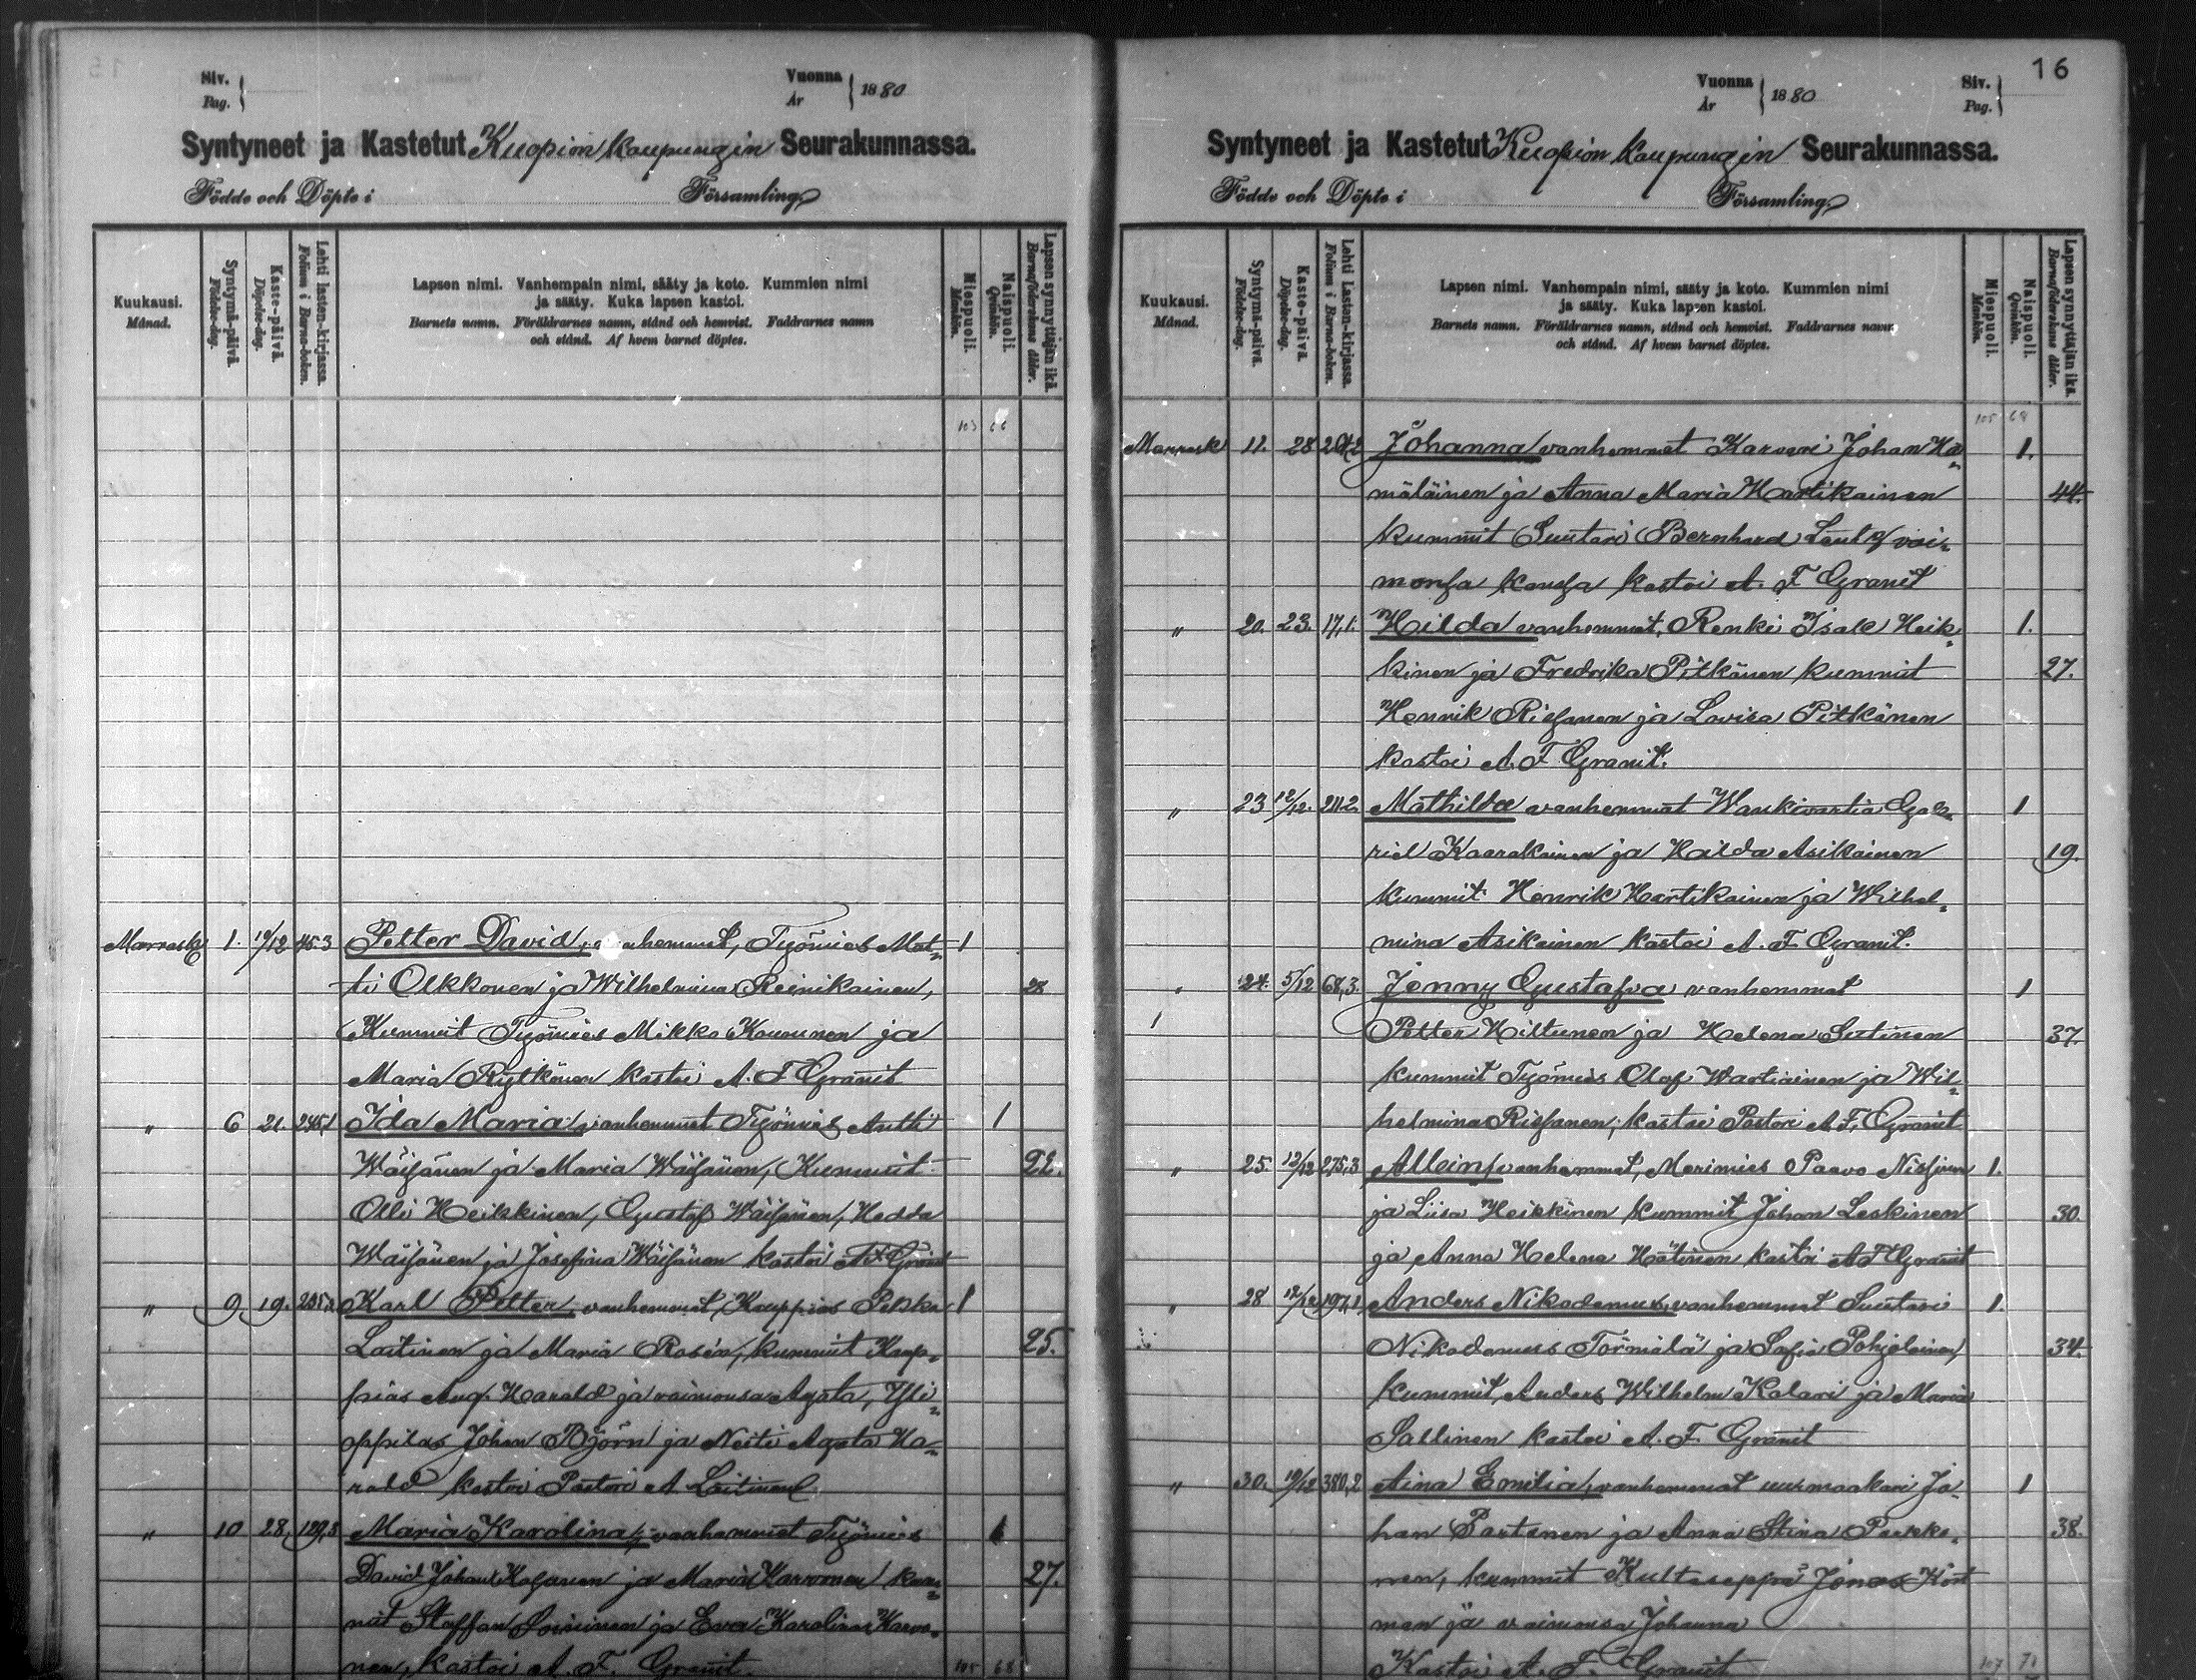 Siv.
Pag.
Vuonna
År
1880
Syntyneet ja Kastetut Kuopion kaupungin Seurakunnassa.
Födde och Döpte i Församling.
Kuukausi.
Månad.
Syntymä-päivä.
Födelse-dag.
Kaste-päivä.
Döpelse-dag.
Lehti lasten-kirjassa.
Folium i Barna-boken.
Lapsen nimi. Vanhempain nimi, sääty ja koto. Kummien nimi
ja sääty. Kuka lapsen kastoi.
Barnets namn. Föräldrarnes namn, stånd och hemvist. Faddrarnes namn
och stånd. Af hvem barnet döptes.
Miespuoli.
Mankön.
Naispuoli.
Qvinkön.
Lapsen synnyttäjän ikä.
Barnaföderskans ålder.
103 66
Marrask 1. 10/12 45.3 Petter David, vanhemmat, Työmies Mat-
ti Olkkonen ja Wilhelmina Reinikainen, 28
Kummit Työmies Mikko Kouounen ja
Maria Rytkönen kastoi A. F Granit
" 6 21. 245,1 Ida Maria, vanhemmat Työmies Antti 1
Wäisänen ja Maria Wäisänen, Kummit 22.
Olli Heikkinen, Gustaf Wäisänen, Hedda
Wäisänen ja Josefina Wäisänen kastoi A F Granit
" 9 19. Karl Petter, vanhemmat, Kauppias Pekka 1
Laitinen ja Maria Rosén, kummit Kaup- 25.
pias Aug. Harald ja vaimonsa Agata, Yli-
oppilas Johan Björn ja Neiti Agata Ha-
rald kastoi Pastori A Laitinen
" 10 28. 129,3 Maria Karolina, vanhemmat Työmies 1
David Johan ja Maria Karvonen kum- 27.
mit Staffan Soininen ja Eva Karolina Karvo-
nen, kastoi A. F. Granit. 105 68
16
Vuonna
År
1880
Siv.
Pag.
Syntyneet ja Kastetut Kuopion kaupungin Seurakunnassa.
Födde och Döpte i Församling.
Kuukausi.
Månad.
Syntymä-päivä.
Födelse-dag.
Kaste-päivä.
Döpelse-dag.
Lehti Lasten-kirjassa.
Folium i Barna-boken.
Lapsen nimi. Vanhempain nimi, sääty ja koto. Kummien nimi
ja sääty. Kuka lapsen kastoi.
Barnets namn. Föräldrarnes namn, stånd och hemvist. Faddrarnes namn
och stånd. Af hvem barnet döptes.
Miespuoli.
Mankön.
Naispuoli.
Qvinkön.
Lapsen synnyttäjän ikä.
Barnaföderskans ålder.
105 68
Marrask 11. 28 Johanna vanhemmat Karvari Johan Hä- 1.
mäläinen ja Anna Maria Hartikainen 44.
kummit Suutari Bernhard vai-
monsa kanssa kastoi A. F Granit
" 20. 23. 17,1. Hilda vanhemmat, Renki Isak Heik- 1.
kinen ja Fredrika Pitkänen kummit 27.
Henrik Rissanen ja Lovisa Pitkänen
kastoi A. F Granit.
" 23 12/12. 211.2 Mathilda vanhemmat Wankivartia Gab- 1
riel Kaarakainen ja Hilda Asikainen 19.
kummit Henrik Hartikainen ja Wilhel-
mina Asikainen kastoi A. F. Granit.
" 24. 5/12 68,3. Jenny Gustafva vanhemmat 1
Petter Hiltunen ja Helena Sutinen 37.
kummit Työmies Olof Wartiainen ja Wil-
helmina Rissanen, kastoi Pastori A. F. Granit
" 25. 12/12 275,3 Allein, vanhemmat, Merimies Paavo Nissinen 1.
ja Liisa Heikkinen kummit Johan Leskinen 30.
ja Anna Helena Hätinen kastoi A F Granit
" 28 12/12 197,1 Anders Nikodemus, vanhemmat Suutari 1.
Nikodemus Törmälä ja Sofia Pohjolainen, 34.
kummit, Anders Wilhelm Kalari ja Maria
Sallinen kastoi A. F. Granit
" 30. 19/12 380,2 Aina Emilia, vanhemmat uurmaakari Jo- 1
han Partanen ja Anna Stina Parkko- 38.
nen, kummit Kultaseppä Jonas Kort
man ja vaimonsa Johanna
Kastoi A. F. Granit 107 71